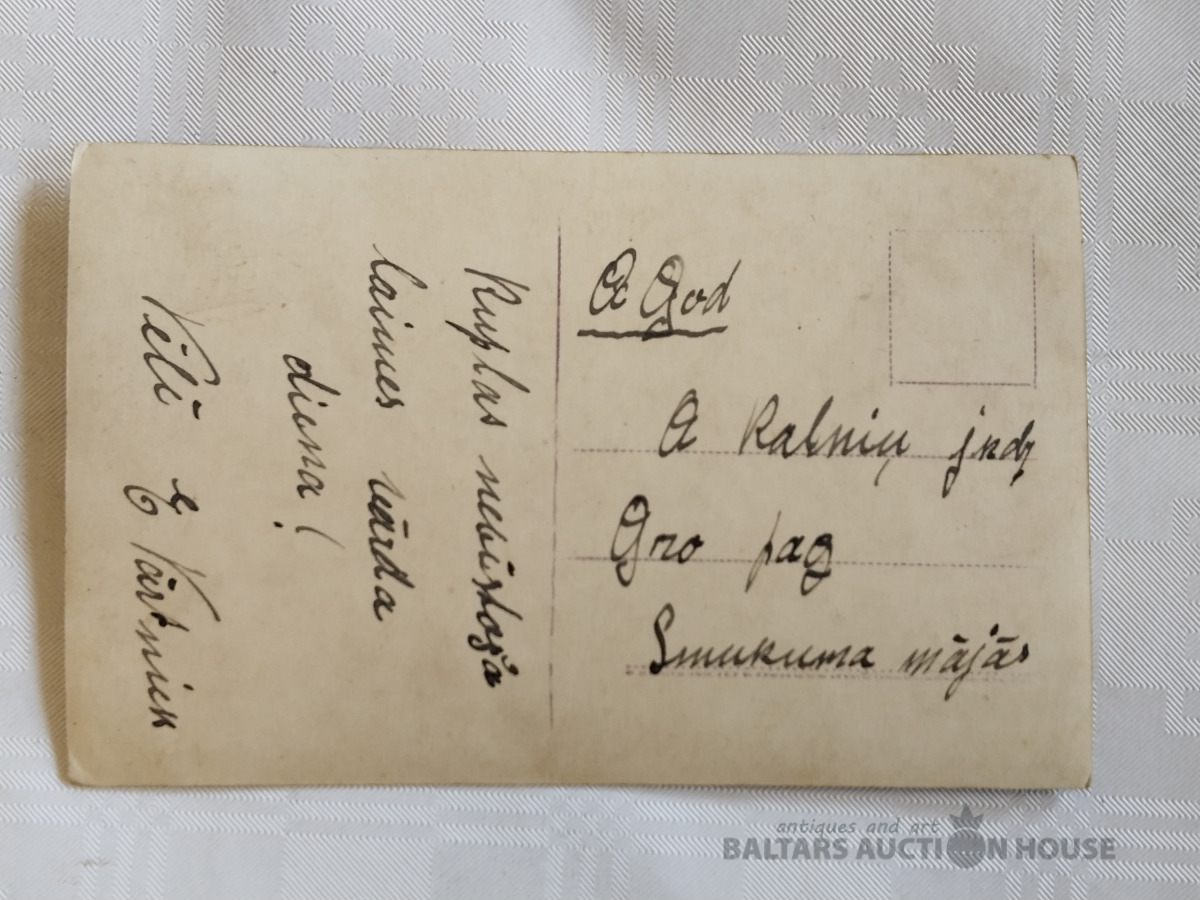 Kuplas nebūstošā
laimes vārda
diena!
Vēlē E Kārkliņ
A God
A Kalniņ jkdz
Gro pag
Smukuma mājās
antiques and art
BALTARS AUCTION HOUSE